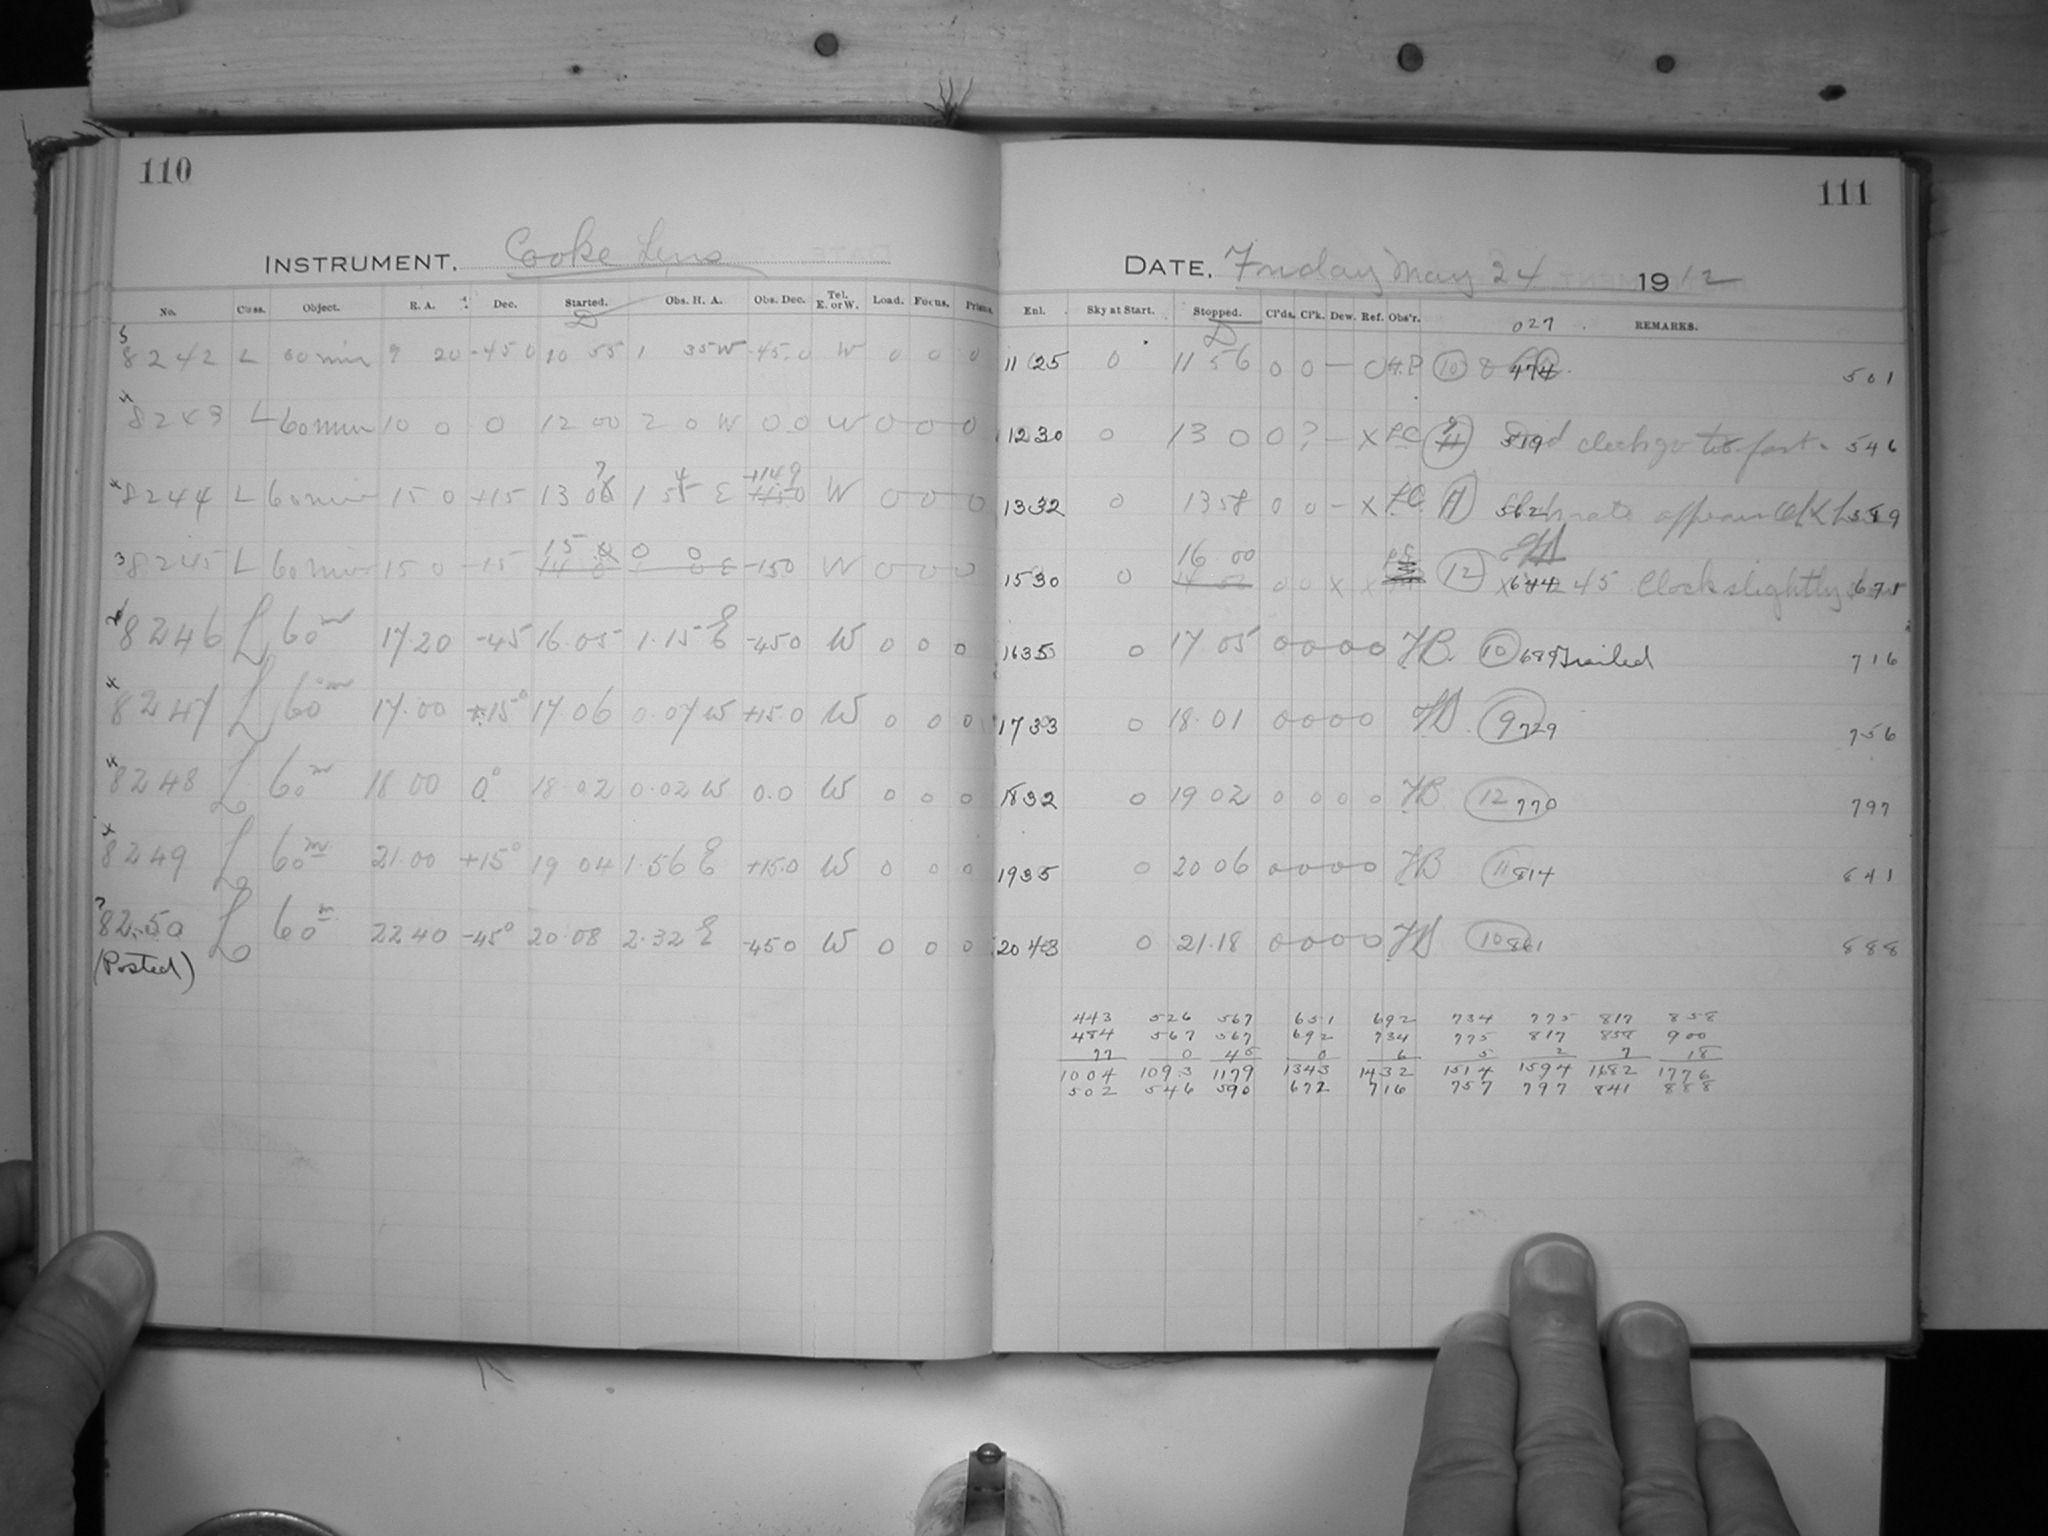 110
INSTRUMENT. Cooke Lens
No. Class. Object. R. A. Dec. Started. Obs. H. A. Obs. Dec. Tel. E. or W. Load. Focus. Prisms.
8242 L 60 min 9 20 -45 0 10 55 1 35 W -45.0 W 0 0 0
8243 L 60 min 10 0 0 12 00 2 0 W 0 0 W 0 0 0
8244 L 60 min 15 0 +15 13 1 E +149 W 0 0 0
8245 L 60 min 15 0 -15 15 0 0 0 -150 W 0 0 0
8246 L 60m 17.20 -45 16.05 1.15 E -450 W 0 0 0
8247 L 60m 17.00 +15° 17.06 0.07 W +15.0 W 0 0 0
8248 L 60m 18 00 0° 18.02 0.02 W 0.0 W 0 0 0
8249 L 60m 21.00 +15° 19 04 1.56 E +15.0 W 0 0 0
8250 L 60m 22 40 -45° 20.08 2.32 E -450 W 0 0 0
(Posted)
111
DATE. Friday May 24 1912
Enl. Sky at Start. Stopped. Cl'ds. Cl'k. Dew. Ref. Obs'r. REMARKS.
027
11 25 0 11 56 0 0 - 10 501
1230 0 13 0 0 ? - X 819 clock go too fast. 546
1332 0 13 58 0 0 - X 11 562
1530 0 16 00 0 0 X X 12 45 Clock slightly
1635 0 17 05 0 0 0 0 10 689 Trailed 716
1733 0 18.01 0 0 0 0 9 729 756
1832 0 19 02 0 0 0 0 12 770 797
1935 0 20 06 0 0 0 0 11 814 841
20 43 0 21.18 0 0 0 0 10 861 888
443 526 567 651 692 734 775 817 858
484 567 567 692 734 775 817 858 900
77 0 45 0 6 5 2 7 18
1004 1093 1179 1343 1432 1514 1594 1682 1776
502 546 590 672 716 757 797 841 888